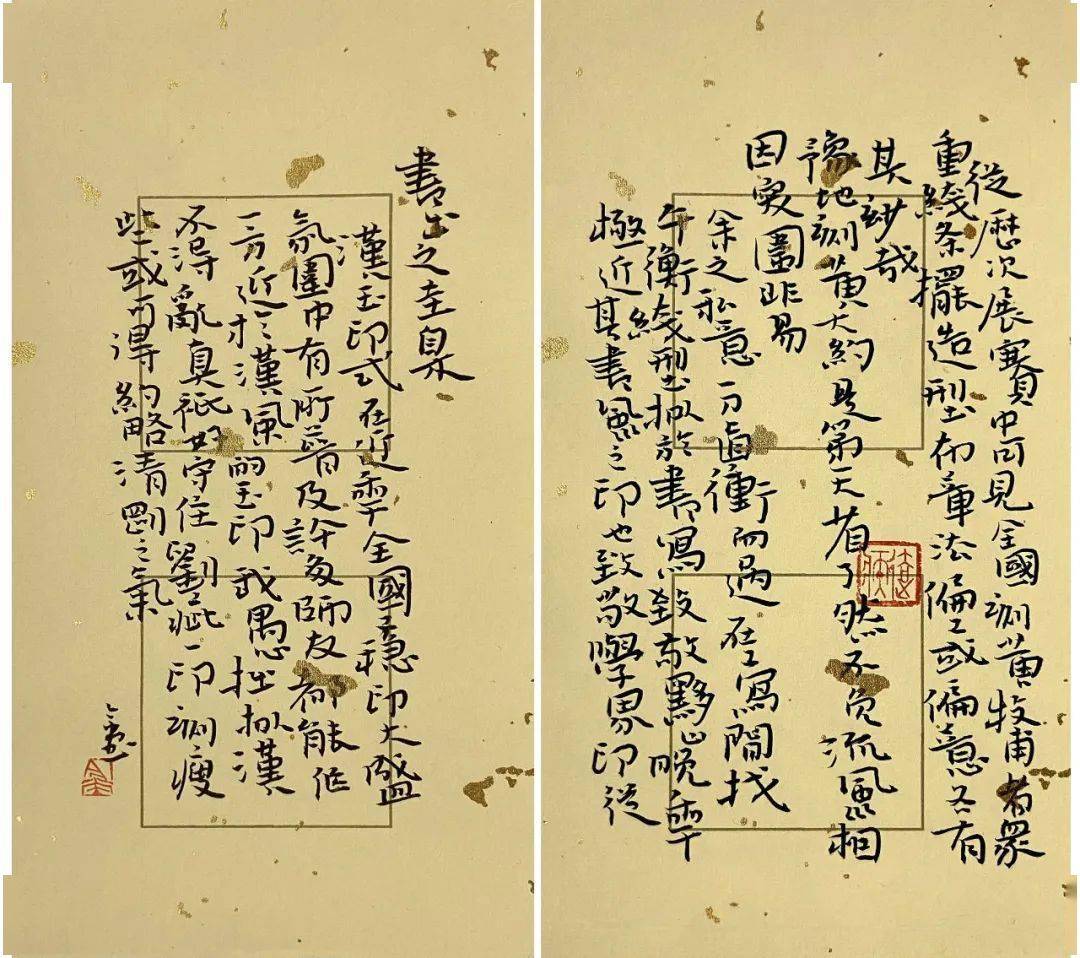 從歷次展賽中可見全國訓黃牧甫者眾
重綫条擺造型布章法偏或偏意各有
其妙哉
豫地訓黃大約是第天省了然不免流風相
因突圍非易
余之私意刀直衝而過在寫間找
午衡綫型擬於書寫致敬黟山晚年
極近其書風之印也致敬學界印從
書出之圭臬
漢玉印式在近年全國穩印大盛
氛圍中有所普及許多師友都能作
一方近於漢風的玉印我愚拙擬漢
不得亂真祇好守住劉疵一印訓瘦
些或可得約略清剛之氣